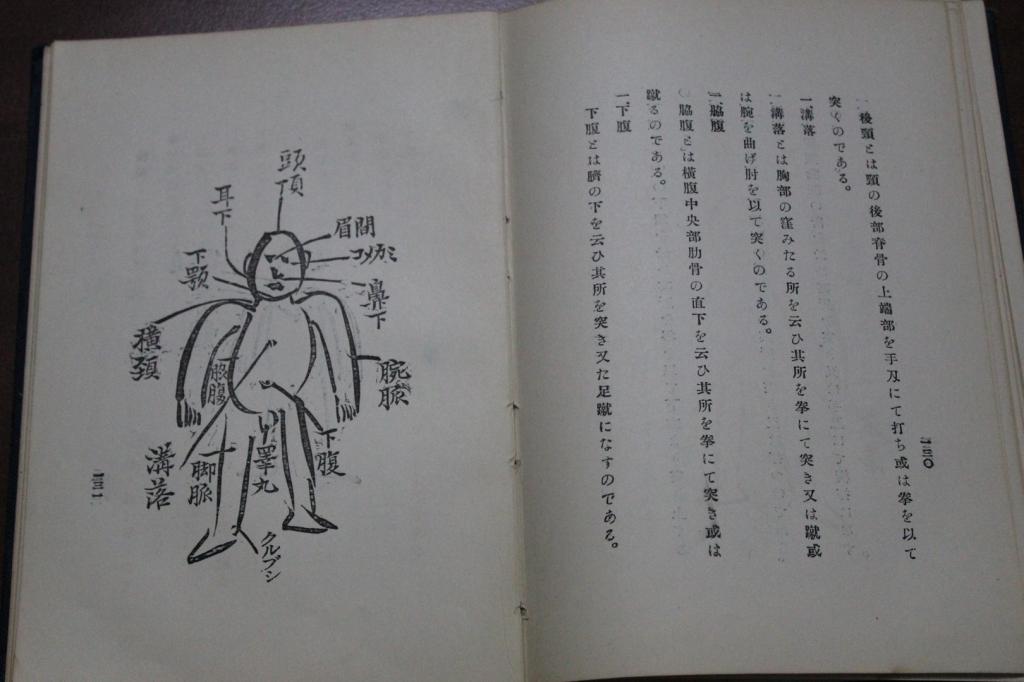 一、後頸とは頸の後部脊骨の上端部を手刄にて打ち或は拳を以て
突くのである。
一、溝落
一、溝落とは胸部の窪みたる所を云ひ其所を拳にて突き又は蹴或
は腕を曲げ肘を以て突くのである。
二、脇腹
〇脇腹とは橫腹中央部肋骨の直下を云ひ其所を拳にて突き或は
蹴るのである。
一、下腹
下腹とは臍の下を云ひ其所を突き又た足蹴になすのである。
一三〇
頭頂
耳下
眉間
コメカミ
下顎
鼻下
横頚
脇腹
腕脈
溝落
脚脈
睪丸
下腹
クルブシ
一三一